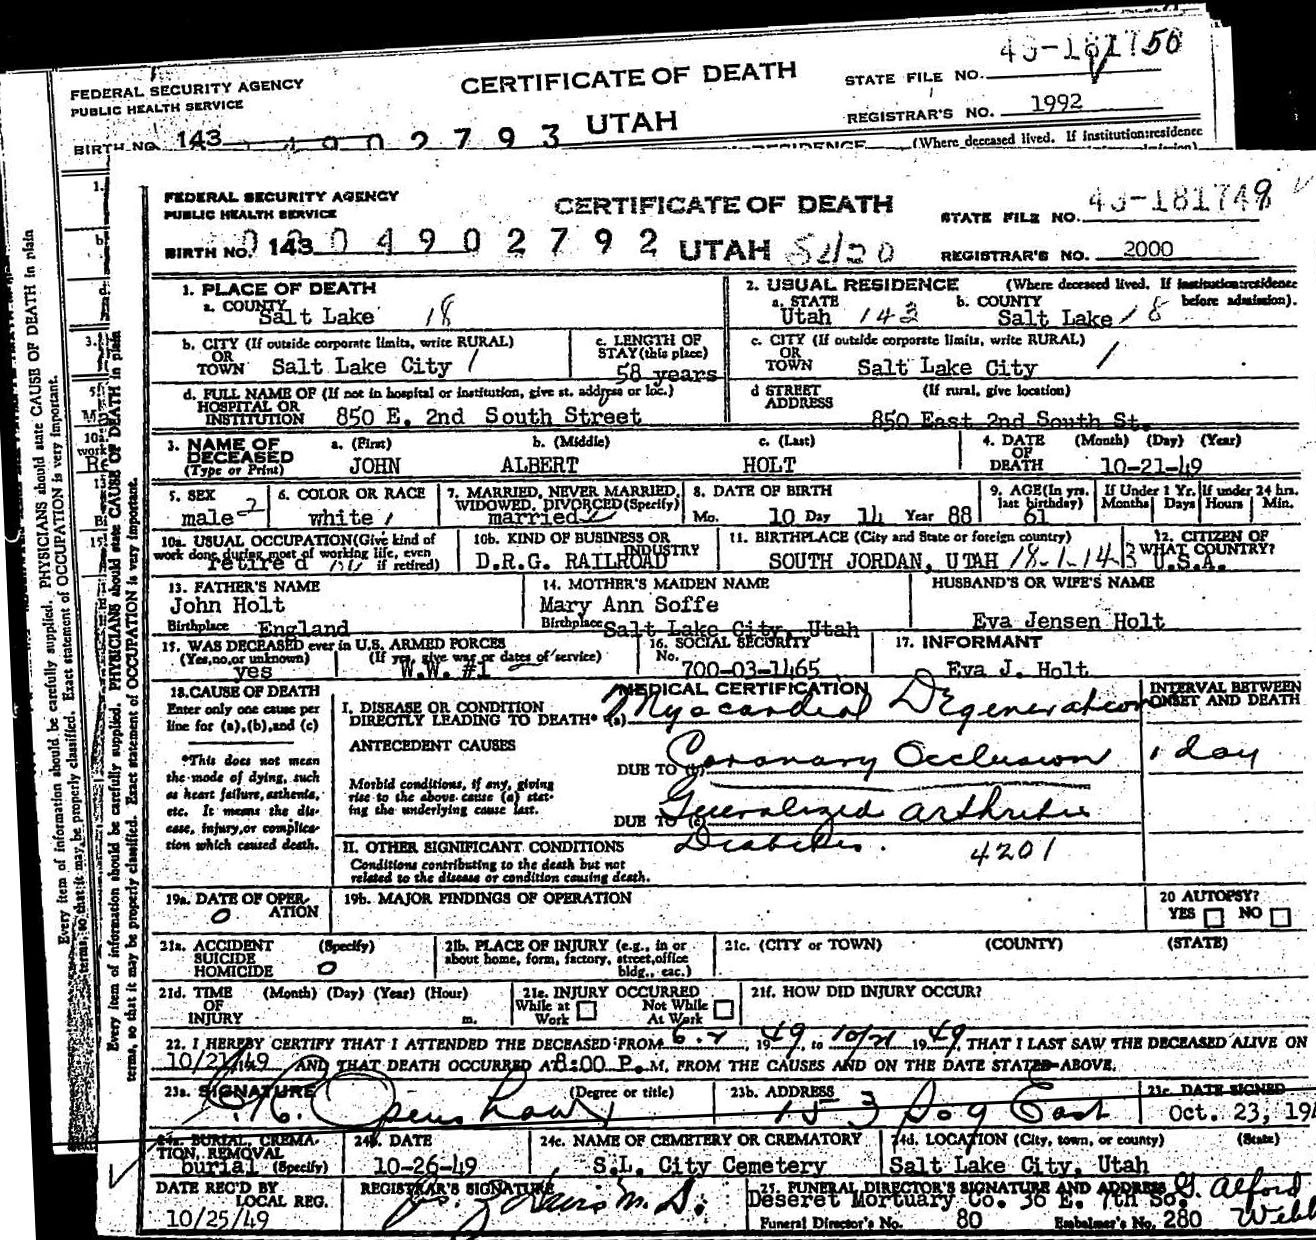 43-181750
FEDERAL SECURITY AGENCY CERTIFICATE OF DEATH STATE FILE NO.
PUBLIC HEALTH SERVICE UTAH REGISTRAR'S NO. 1992
BIRTH NO. 143 4902793 (Where deceased lived. If institution:residence
FEDERAL SECURITY AGENCY CERTIFICATE OF DEATH STATE FILE NO.
PUBLIC HEALTH SERVICE
BIRTH NO. 143 04902792 UTAH REGISTRAR'S NO. 2000
1. PLACE OF DEATH 2. USUAL RESIDENCE (Where deceased lived. If institution:residence
a. COUNTY a. STATE b. COUNTY before admission).
Salt Lake 18 Utah 143 Salt Lake 18
b. CITY (If outside corporate limits, write RURAL) c. LENGTH OF c. CITY (If outside corporate limits, write RURAL)
OR STAY (this place) OR
TOWN Salt Lake City 1 58 years TOWN Salt Lake City 1
d. FULL NAME OF (If not in hospital or institution, give st. address or loc.) d STREET (If rural, give location)
HOSPITAL OR ADDRESS
INSTITUTION 850 E. 2nd South Street 850 East 2nd South St.
3. NAME OF a. (First) b. (Middle) c. (Last) 4. DATE (Month) (Day) (Year)
DECEASED OF
(Type or Print) JOHN ALBERT HOLT DEATH 10-21-49
5. SEX 6. COLOR OR RACE 7. MARRIED, NEVER MARRIED, 8. DATE OF BIRTH 9. AGE (In yrs. If Under 1 Yr. If under 24 hrs.
WIDOWED, DIVORCED (Specify) last birthday) Months Days Hours Min.
male 2 white 1 married Mo. 10 Day 14 Year 88 61
10a. USUAL OCCUPATION (Give kind of 10b. KIND OF BUSINESS OR 11. BIRTHPLACE (City and State or foreign country) 12. CITIZEN OF
work done during most of working life, even INDUSTRY WHAT COUNTRY?
retired if retired) D.R.G. RAILROAD SOUTH JORDAN, UTAH 18-1-143 U.S.A.
13. FATHER'S NAME 14. MOTHER'S MAIDEN NAME HUSBAND'S OR WIFE'S NAME
John Holt Mary Ann Soffe Eva Jensen Holt
Birthplace England Birthplace Salt Lake City, Utah
15. WAS DECEASED ever in U.S. ARMED FORCES 16. SOCIAL SECURITY 17. INFORMANT
(Yes,no,or unknown) (If yes, give war or dates of service) No.
yes W.W. #1 700-03-1465 Eva J. Holt
18. CAUSE OF DEATH MEDICAL CERTIFICATION INTERVAL BETWEEN
Enter only one cause per I. DISEASE OR CONDITION ONSET AND DEATH
line for (a),(b),and (c) DIRECTLY LEADING TO DEATH* (a) Myocardial Degeneration
ANTECEDENT CAUSES
*This does not mean DUE TO (b) Coronary Occlusion 1 day
the mode of dying, such Morbid conditions, if any, giving
as heart failure, asthenia, rise to the above cause (a) stat-
etc. It means the dis- ing the underlying cause last.
ease, injury,or complica- DUE TO (c) Generalized arthritis
tion which caused death. II. OTHER SIGNIFICANT CONDITIONS Diabetes. 4201
Conditions contributing to the death but not
related to the disease or condition causing death.
19a. DATE OF OPER- 19b. MAJOR FINDINGS OF OPERATION 20 AUTOPSY?
0 ATION YES NO
21a. ACCIDENT (Specify) 21b. PLACE OF INJURY (e.g., in or 21c. (CITY or TOWN) (COUNTY) (STATE)
SUICIDE about home, form, factory, street,office
HOMICIDE 0 bldg., eac.)
21d. TIME (Month) (Day) (Year) (Hour) 21e. INJURY OCCURRED 21f. HOW DID INJURY OCCUR?
OF While at Not While
INJURY m. Work At Work
22. I HEREBY CERTIFY THAT I ATTENDED THE DECEASED FROM 6-2, 1949, to 10/21 1949, THAT I LAST SAW THE DECEASED ALIVE ON
10/21/49 AND THAT DEATH OCCURRED AT 8:00 P.M. FROM THE CAUSES AND ON THE DATE STATED ABOVE.
23a. SIGNATURE (Degree or title) 23b. ADDRESS 23c. DATE SIGNED
Oct. 23, 19
24a. BURIAL, CREMA- 24b. DATE 24c. NAME OF CEMETERY OR CREMATORY 24d. LOCATION (City, town, or county) (State)
TION, REMOVAL
burial (Specify) 10-26-49 S.L. City Cemetery Salt Lake City, Utah
DATE REC'D BY REGISTRAR'S SIGNATURE 25. FUNERAL DIRECTOR'S SIGNATURE AND ADDRESS G. Alford
LOCAL REG. Deseret Mortuary Co. 36 E. 7th So. Webb
10/25/49 Funeral Director's No. 80 Embalmer's No. 280
Every item of information should be carefully supplied. PHYSICIANS should state CAUSE OF DEATH in plain
terms, so that it may be properly classified. Exact statement of OCCUPATION is very important.